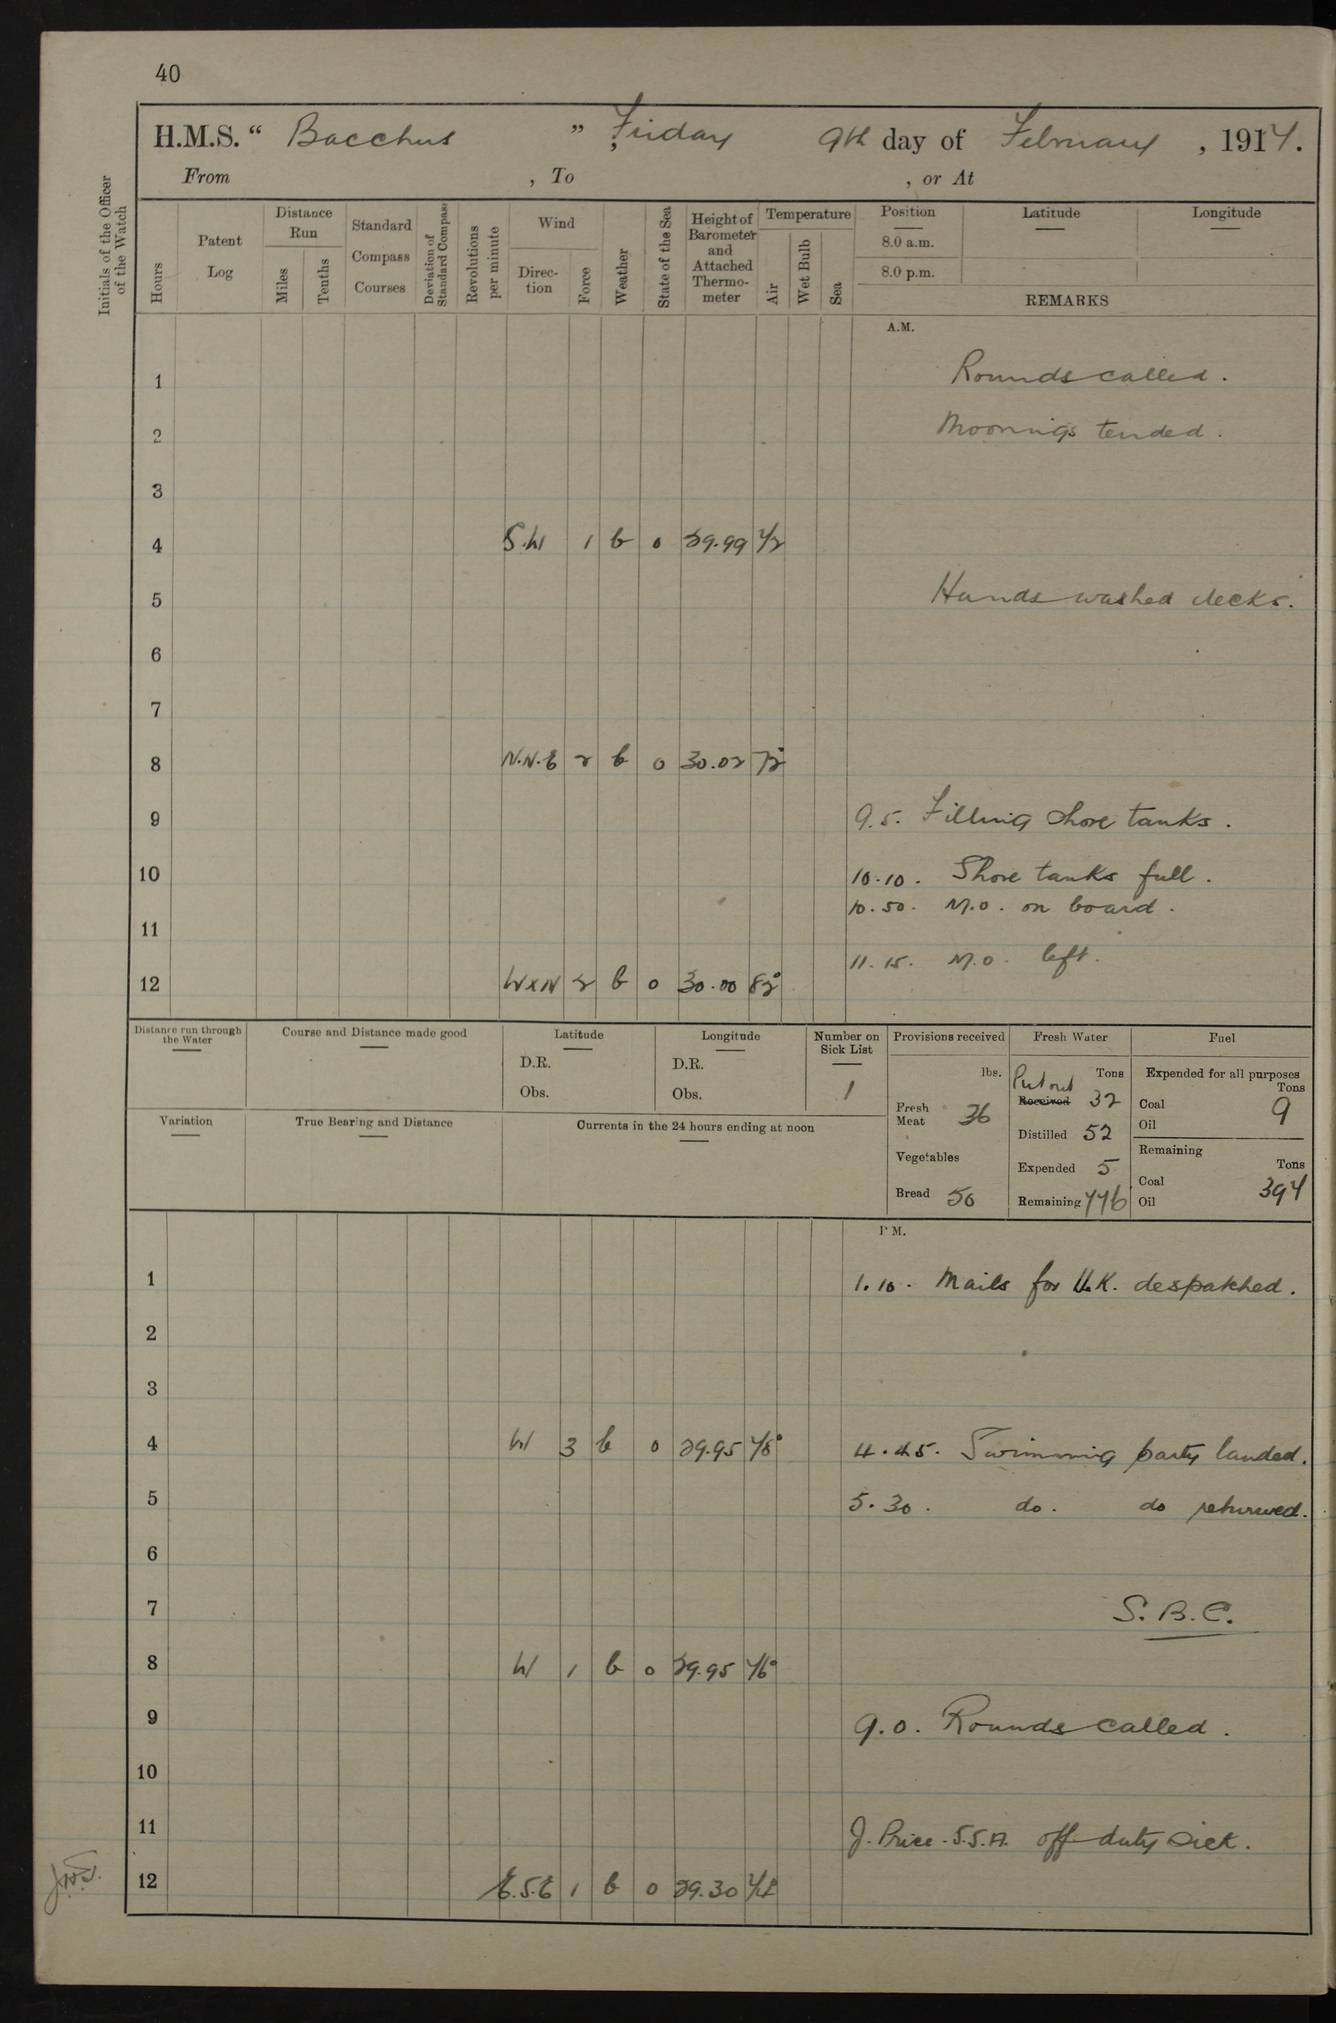 40
H.M.S. “ Bacchus ” Friday 9th day of February , 1917.
From , To , or At
Initials of the Officer of the Watch
Hours
Patent Log
Distance Run
Miles
Tenths
Standard Compass Courses
Deviation of Standard Compass
Revolutions per minute
Wind
Direc-tion
Force
Weather
State of the Sea
Height of Barometer and Attached Thermo-meter
Temperature
Air
Wet Bulb
Sea
Position Latitude Longitude
8.0 a.m.
8.0 p.m.
REMARKS
A.M.
1 Rounds called.
2 Moorings tended.
3
4 S.W 1 b 0 29.99
5 Hands washed decks.
6
7
8 N.N.E 2 b 0 30.02 72°
9 9.5. Filling shore tanks.
10 10.10. Shore tanks full.
10.50. M.O. on board.
11
11.15. M.O. left.
12 WxN 2 b 0 30.00 82°
Distance run through the Water
Course and Distance made good
Latitude
D.R.
Obs.
Longitude
D.R.
Obs.
Number on Sick List
1
Provisions received
lbs.
Fresh Meat 36
Vegetables
Bread 50
Fresh Water
Tons
Put out
Received 32
Distilled 52
Expended 5
Remaining 776
Fuel
Expended for all purposes
Tons
Coal 9
Oil
Remaining
Tons
Coal 394
Oil
Variation
True Bearing and Distance
Currents in the 24 hours ending at noon
P.M.
1 1.10. Mails for U.K. despatched.
2
3
4 W 3 b 0 29.95 78° 4.45. Swimming party landed.
5 5.30. do. do returned.
6
7 S.B.C.
8 W 1 b 0 29.95 76°
9 9.0. Rounds called.
10
11 J. Price. S.S.A. off duty sick.
12 E.S.E 1 b 0 29.30